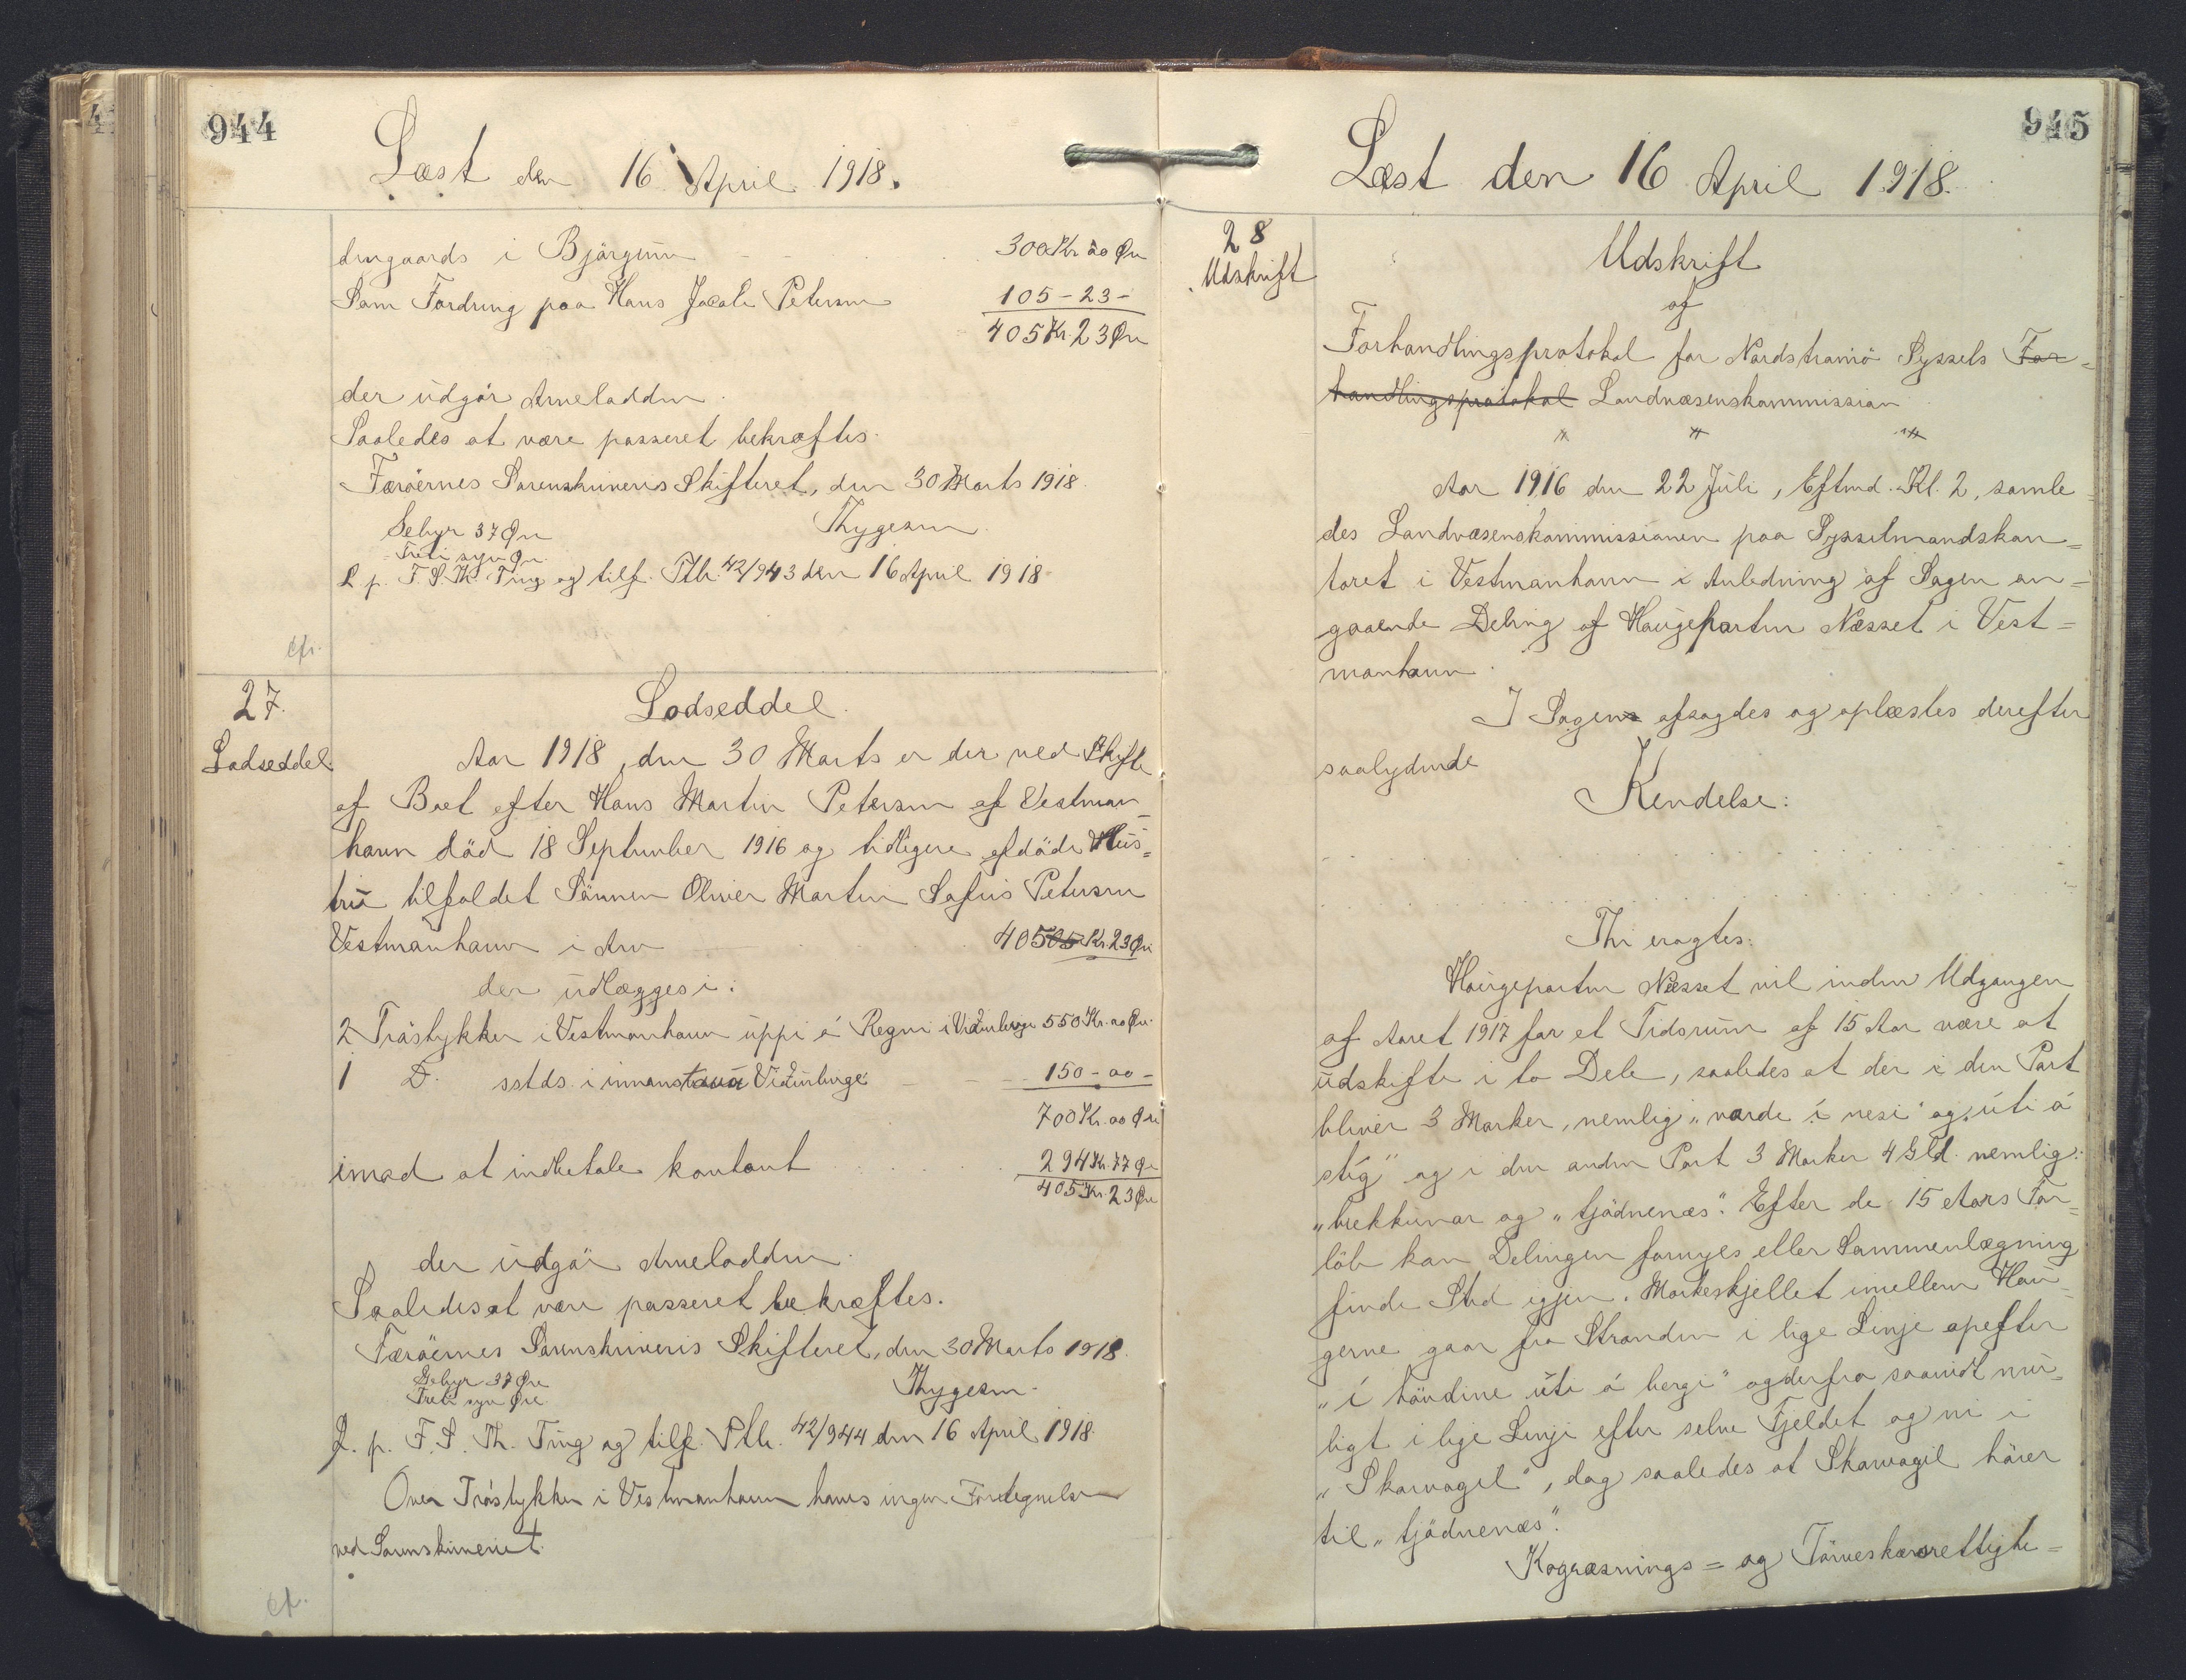 944
Læst den 16 April 1918.
dengaards i Bjørgum 300 Kr 00 Øre
Som Fordring paa Hans Jacob Petersen 105-23-
405 Kr. 23 Øre
der udgør Arvelodden.
Saaledes at være passeret bekræftes.
Færöernes Sorenskriveris Skifteret, den 30 Marts 1918.
Gebyr 37 Øre
Thygesen.
Treti syv Øre.
L. p. F. S. Th. Ting og tilf. Ptb. 42/943 den 16 April 1918
cfr.
27.
Lodseddel
Lodseddel.
Aar 1918, den 30 Marts er der ved Skifte
af Boet efter Hans Martin Petersen af Vestman-
havn död 18 September 1916 og tidligere afdöde Hus-
tru tilfaldet Sönnen Oliver Martin Petersen
Vestmanhavn i Arv 40505 Kr. 23 Øre
der udlægges i:
2 Tröstykker i Vestmanhavn uppi á Regni i 550 Kr. 00 Øre
1 D. sstds. i 150-00-
700 Kr. 00 Øre
imod at indbetale kontant 294 Kr. 77 Øre
405 Kr. 23 Øre
der udgör Arvelodden.
Saaledes at være passeret bekræftes.
Færöernes Sorenskriveris Skifteret, den 30 Marts 1918.
Gebyr 37 Øre
Treti syv Øre.
Thygesen.
L. p. F. S. Th. Ting og tilf. Ptb. 42/944 den 16 April 1918.
Over Tröstykker i Vestmanhavn haves ingen Fortegnelse
ved Sorenskriveriet.
cfr.
945
Læst den 16 April 1918.
28
Udskrift
Udskrift
af
Forhandlingsprotokol for Nordstrømö Syssels For=
handlingsprotokol Landvæsenskommission
Aar 1916 den 22 Juli, Eftmd. Kl. 2, samle=
des Landvæsenskommissionen paa Sysselmandskon=
toret i Vestmanhavn i Anledning af Sagen an=
gaaende Deling af Haugeparten Næsset i Vest=
manhavn.
I Sagen afsagdes og oplæstes derefter
saalydende
Kendelse:
Thi eragtes:
Haugeparten Næsset vil inden Udgangen
af Aaret 1917 for et Tidsrum af 15 Aar være at
udskifte i to Dele, saaledes at der i den Part
bliver 3 Marker, nemlig „norde í nesi" og „úti á
stíg" og i den anden Part 3 Marker 4 Gld. nemlig:
„brekkunar og „tjödnenæs". Efter de 15 Aars For=
löb kan Delingen fornyes eller Sammenlægning
finde Sted igjen. Markeskjellet imellem Hau=
gerne gaar fra Stranden i lige Linje opefter
„í höudine úti á bergi" og derfra saavidt mu=
ligt i lige Linje efter selve Fjeldet og ni i
„Skarvagil", dog saaledes at Skarvagil hörer
til „tjödnenæs".
Kogræsnings= og Törveskærsrettighe=